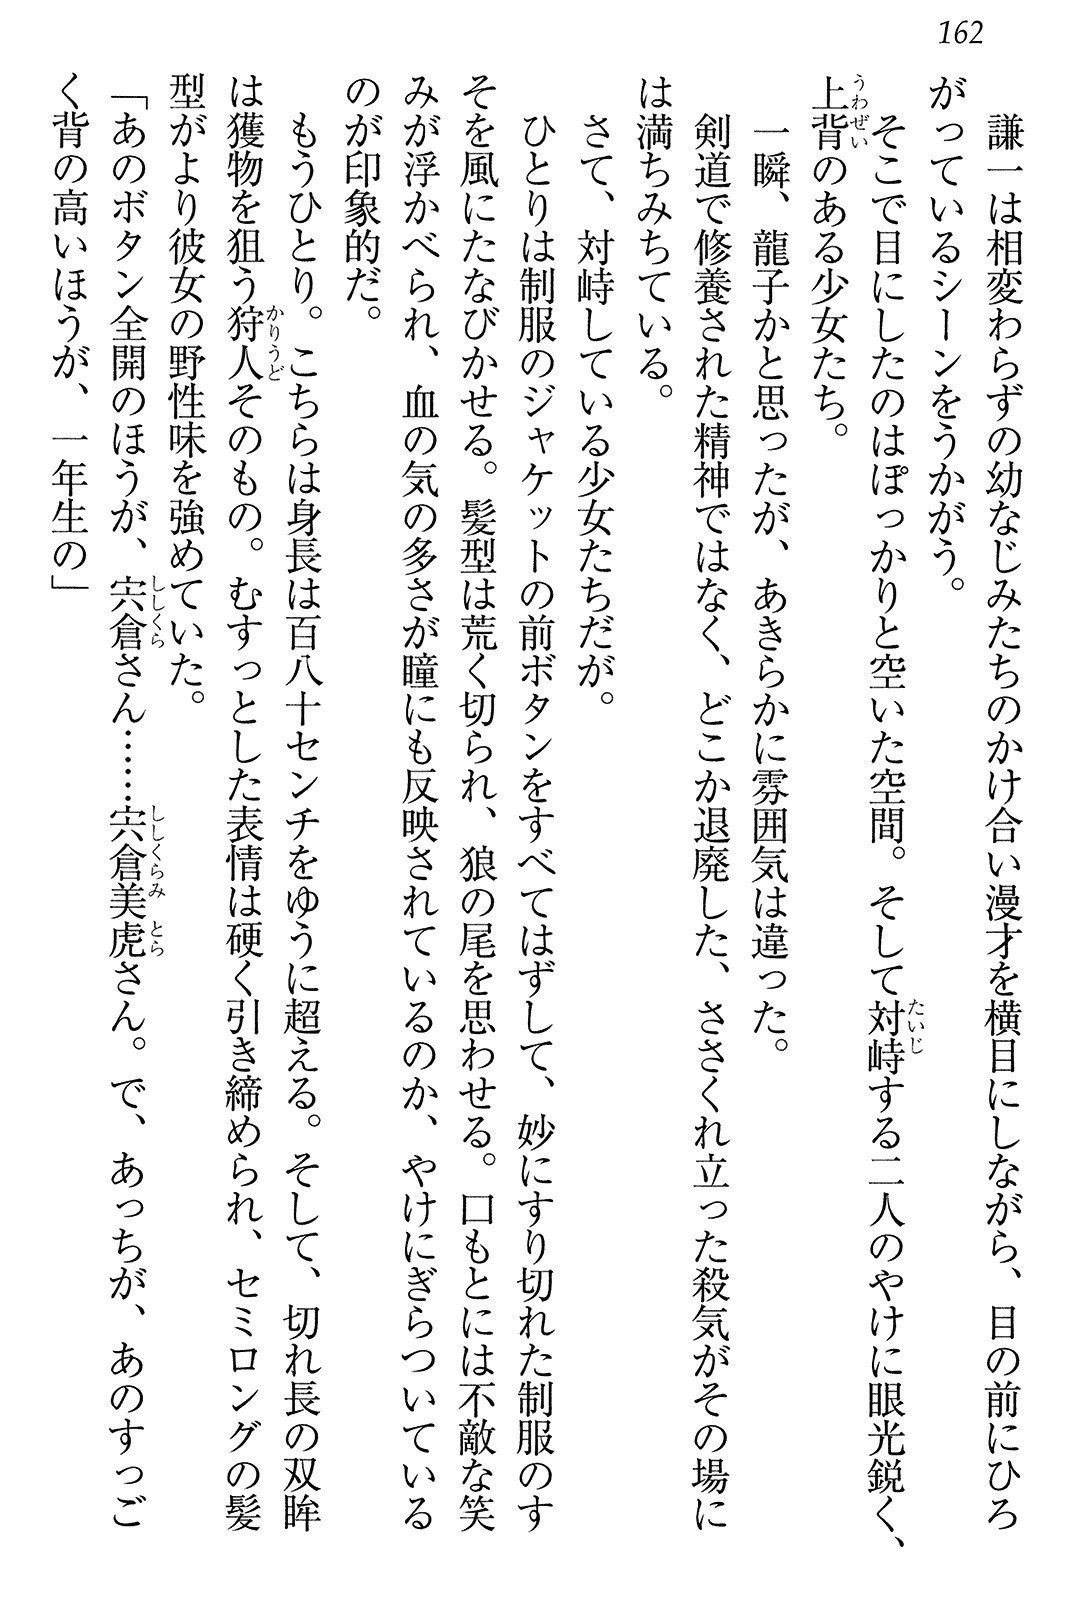 162
謙一は相変わらずの幼なじみたちのかけ合い漫才を横目にしながら、目の前にひろ
がっているシーンをうかがう。
そこで目にしたのはぽっかりと空いた空間。そして対峙する二人のやけに眼光鋭く、
上背のある少女たち。
一瞬、龍子かと思ったが、あきらかに雰囲気は違った。
剣道で修養された精神ではなく、どこか退廃した、ささくれ立った殺気がその場に
は満ちみちている。
さて、対峙している少女たちだが。
ひとりは制服のジャケットの前ボタンをすべてはずして、妙にすり切れた制服のす
そを風にたなびかせる。髪型は荒く切られ、狼の尾を思わせる。口もとには不敵な笑
みが浮かべられ、血の気の多さが瞳にも反映されているのか、やけにぎらついている
のが印象的だ。
もうひとり。こちらは身長は百八十センチをゆうに超える。そして、切れ長の双眸
は獲物を狙う狩人そのもの。むすっとした表情は硬く引き締められ、セミロングの髪
型がより彼女の野性味を強めていた。
「あのボタン全開のほうが、宍倉さん……宍倉美虎さん。で、あっちが、あのすっご
く背の高いほうが、一年生の」